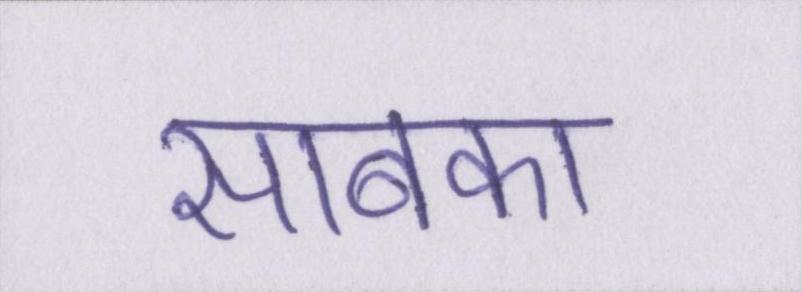 साबका